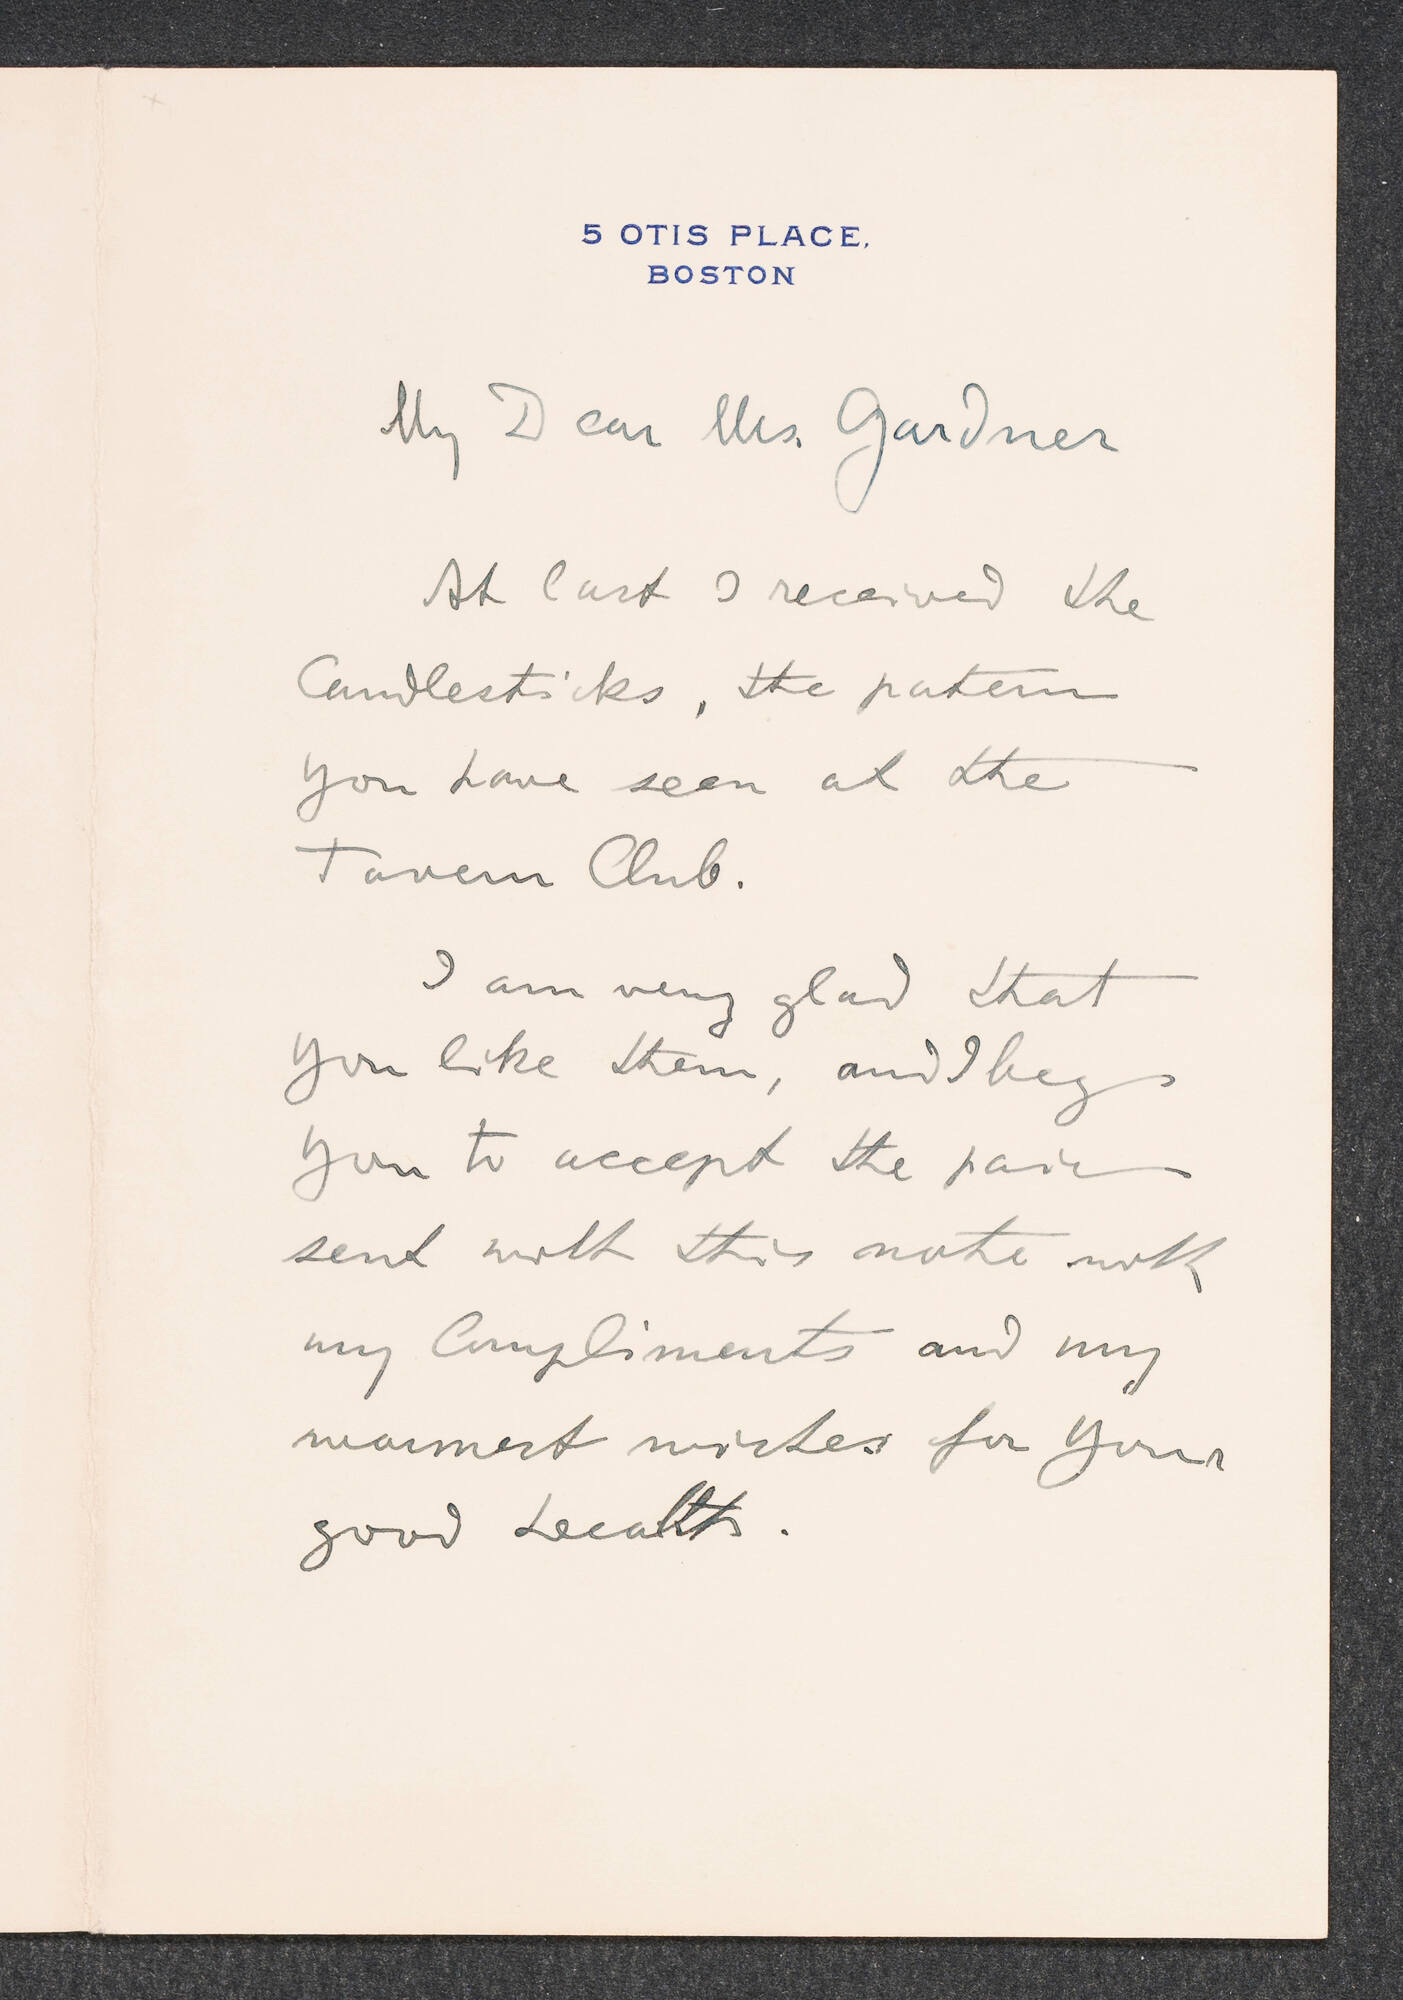 5 OTIS PLACE,
BOSTON
My Dear Mrs. Gardner
At last I received the
Candlesticks, the patern
you have seen at the
Tavern Club.
I am very glad that
you like them, and I beg
you to accept the pair
sent with this note with
my Compliments and my
warmest wishes for your
good health.